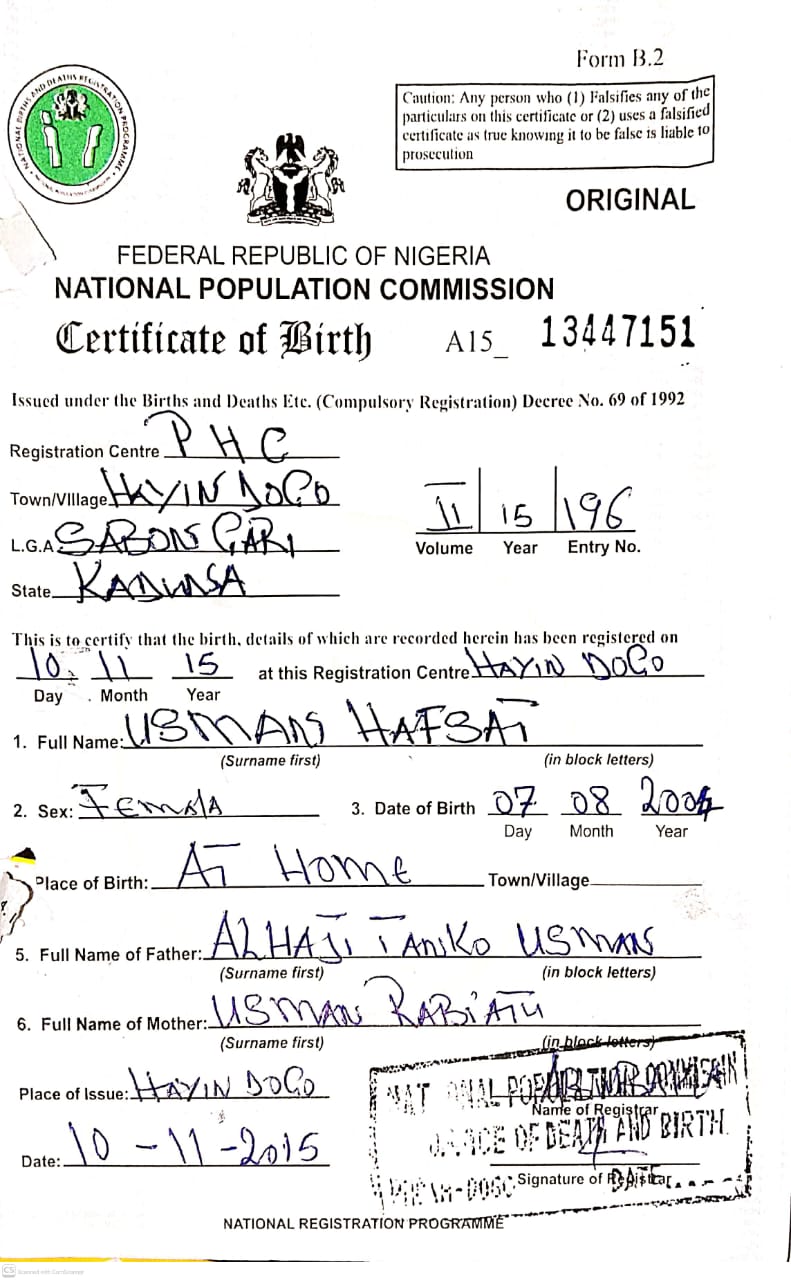 Form B.2
NATIONAL BIRTHS AND DEATHS REGISTRATION PROGRAMME
Caution: Any person who (1) Falsifies any of the
particulars on this certificate or (2) uses a falsified
certificate as true knowing it to be false is liable to
prosecution
ORIGINAL
FEDERAL REPUBLIC OF NIGERIA
NATIONAL POPULATION COMMISSION
Certificate of Birth A15_ 13447151
Issued under the Births and Deaths Etc. (Compulsory Registration) Decree No. 69 of 1992
Registration Centre PHC
Town/Village HAYIN DOGO
L.G.A SABON GARI
State KADUNA
II 15 196
Volume Year Entry No.
This is to certify that the birth, details of which are recorded herein has been registered on
10 11 15 at this Registration Centre HAYIN DOGO
Day Month Year
1. Full Name: USMAN HAFSAT
(Surname first) (in block letters)
2. Sex: Female 3. Date of Birth 07 08 2004
Day Month Year
Place of Birth: AT Home Town/Village
5. Full Name of Father: ALHAJI TANIKO USMAN
(Surname first) (in block letters)
6. Full Name of Mother: USMAN RABIATU
(Surname first) (in block letters)
Place of Issue: HAYIN DOGO
Name of Registrar
OF DEATH AND BIRTH
Date: 10-11-2015
Signature of Registrar
DATE
NATIONAL REGISTRATION PROGRAMME
CS Scanned with CamScanner